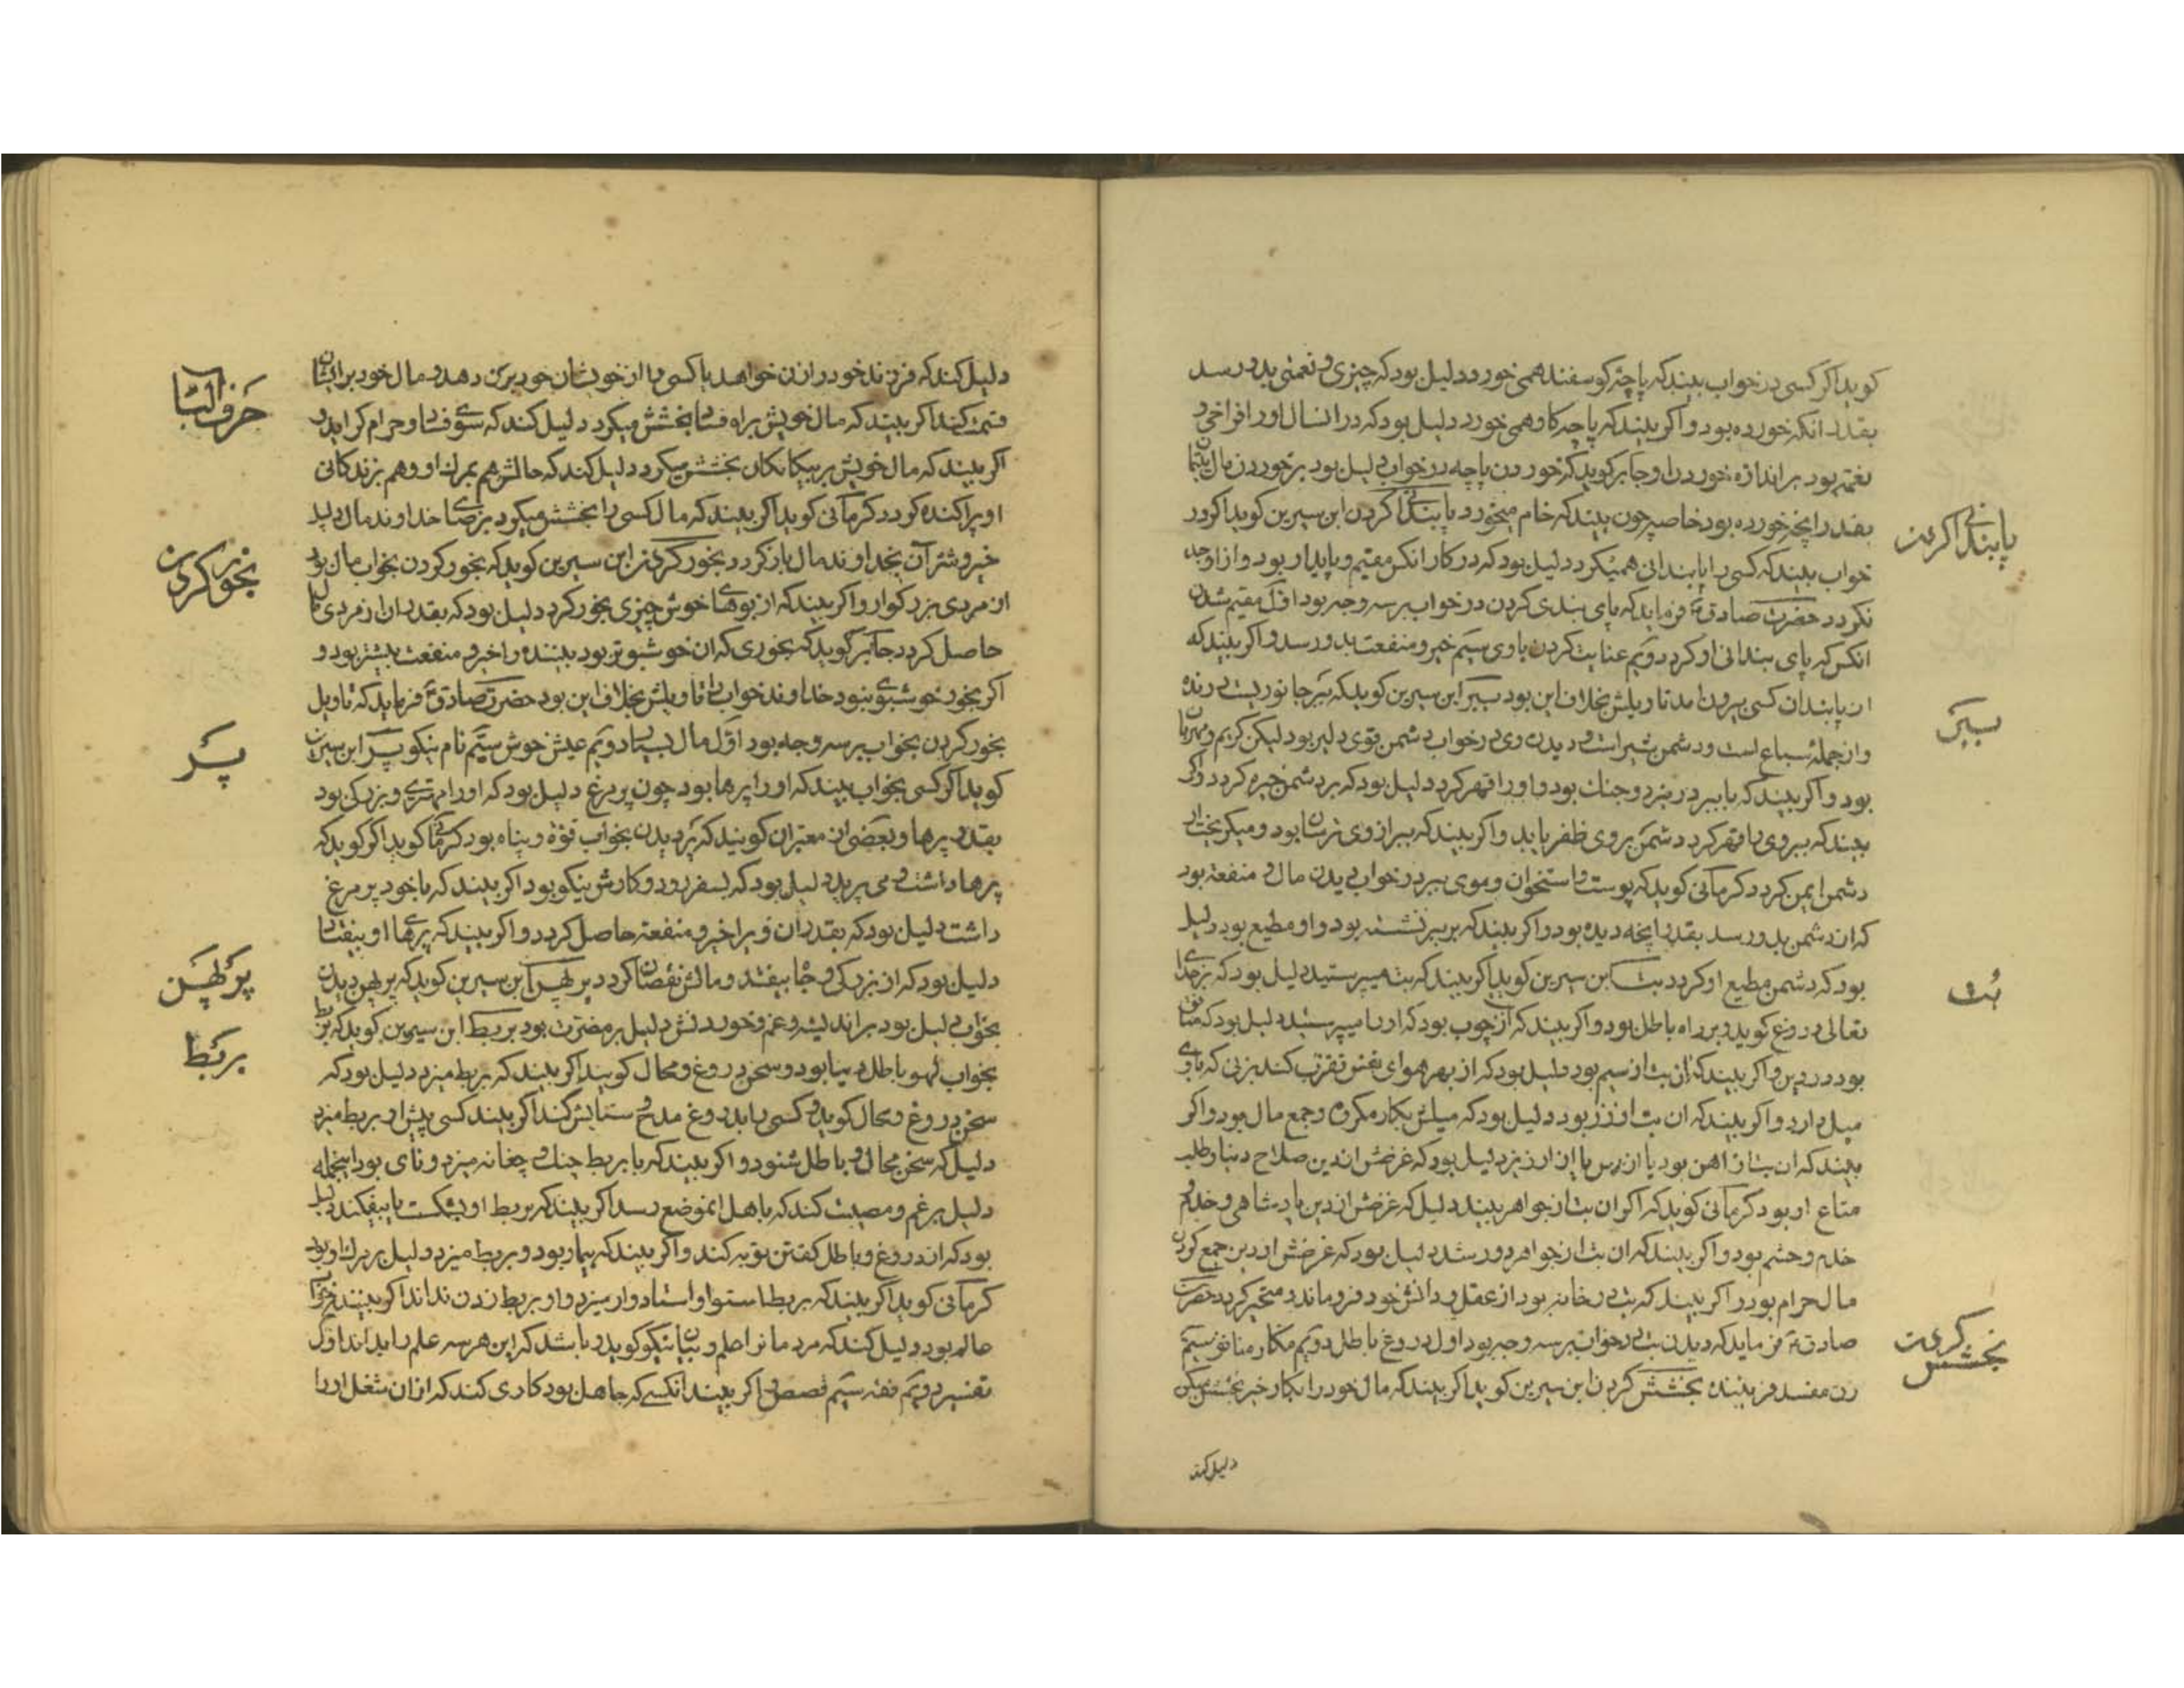 کوید اکر کسی در خواب بیند که پاچۀ کوسفند همی خورد دلیل بود که چیزی و نعمتی بدو رسد
بقدر انکه خورده بود و اکر بیند که پاچه کاو همی خورد دلیل بود که در انسال او را فراخی و
نعمت بود بر اندازه خوردن او جابر کوید که خوردن پاچه در خواب دلیل بود بر خوردن مال یتیمان
بقدر انچه خورده بود خاصه چون بیند که خام میخورد پابندانی کردن ابن سیرین کوید اکر در
پابندانی کردن
خواب بیند که کسی را پابندانی همیکرد دلیل بود که در کار انکس مقیم و پایدار بود و از او جدا
نکردد حضرت صادق ع فرماید که پای بندی کردن در خواب بر سه وجه بود اول مقیم شدن
انکس که پای بندانی او کرد دویم عنایت کردن با وی سیم خیر و منفعت بدو رسد و اکر بیند که
از پابندان کسی بیرون امد تاویلش بخلاف این بود ببر ابن سیرین کوید که ببر جانوریست درنده
ببر
و از جملۀ سباع است و دشمن شیر است و دیدن وی در خواب دشمن قوی دلیر بود لیکن کریم و مهربان
بود و اکر بیند که با ببر در نبرد و جنک بود و او را قهر کرد دلیل بود که بر دشمن چیره کردد و اکر
بیند که ببر وی را قهر کرد دشمن بر وی ظفر یابد و اکر بیند که ببر از وی ترسان بود و میکریخت از
دشمن ایمن کردد کرمانی کوید که پوست و استخوان و موی ببر در خواب دیدن مال و منفعت بود
که از دشمن بدو رسد بقدر انچه دیده بود و اکر بیند که بر ببر نشسته بود و او مطیع بود دلیل
بود که دشمن مطیع او کردد بت ابن سیرین کوید اکر بیند که بت میپرستید دلیل بود که بر خدای
بت
تعالی دروغ کوید و بر راه باطل بود و اکر بیند که آن از چوب بود که او را میپرستید دلیل بود که منافق
بود در دین و اکر بیند که ان بت از سیم بود دلیل بود که از بهر هوای نفس تقرب کند بزنی که با وی
میل دارد و اکر بیند که ان بت از زر بود دلیل بود که میلش بکار مکروه و جمع مال بود و اکر
بیند که ان بت از اهن بود یا از مس یا از ارزیز دلیل بود که غرضش از دین صلاح دنیا و طلب
متاع او بود کرمانی کوید که اکر ان بت از جواهر بیند دلیل که غرضش از دین پادشاهی و خدم و
خدم و حشم بود و اکر بیند که ان بت از جواهر دور شد دلیل بود که غرضش از دین جمع کردن
مال حرام بود و اکر بیند که بت در خانه بود از عقل و دانش خود فرو ماند و متحیر کردد حضرت
صادق ع فرماید که دیدن بت در خواب بر سه وجه بود اول دروغ باطل دویم مکار منافق سیم
زن مفسد فریبنده بخشش کردن ابن سیرین کوید اکر بیند که مال خود را بکار خیر بخشش میکرد
بخشش کردن
دلیل کند
دلیل کند که فرزند خود را زن خواهد یا کسی را از خویشان خود بزن دهد و مال خود بر ایشان
حرف البا
قسمت کند اکر بیند که مال خویش براه فساد بخشش میکرد دلیل کند که سوی فساد و حرام کراید و
اکر بیند که مال خویش بر بیکانکان بخشش میکرد دلیل کند که مالش هم بمرك او و هم بزندکانی
او پراکنده کردد کرمانی کوید اکر بیند که مال کسی را بخشش میکرد برضای خداوند مال دلیل
خیر و شر آن بخداوند مال باز کردد بخور کردن ابن سیرین کوید که بخور کردن بخواب مال بود
بخور کردن
از مردی بزرکوار و اکر بیند که از بوهای خوش چیزی بخور کرد دلیل بود که بقدر ان از مردی مال
حاصل کردد جابر کوید که بخوری که ان خوشبوتر بود بیننده را خیر و منفعت بیشتر بود و
اکر بخور خوشبوی نبود خداوند خواب را تاویلش بخلاف این بود حضرت صادق ع فرماید که تاویل
بخور کردن بخواب بر سه وجه بود اول مال بسیار دویم عیش خوش سیم نام نیکو پر ابن سیرین
پر
کوید اکر کسی بخواب بیند که او را پرها بود چون پر مرغ دلیل بود که او را مهتری و بزرکی بود
بقدر پرها و بعضی از معبران کویند که پر دیدن بخواب قوة و پناه بود کرمانی کوید اکر کوید که
پرها داشت و می پرید دلیل بود که بسفر رود و کارش نیکو بود اکر بیند که با خود پر مرغ
داشت دلیل بود که بقدر ان او را خیر و منفعة حاصل کردد و اکر بیند که پرهای او بیفتاد
دلیل بود که از بزرکی و جاه بیفتد و مالش نقصان کردد پرلهن ابن سیرین کوید که پرلهن دیدن
پرلهن
بخواب دلیل بود بر اندیشه و غم و خوردنش دلیل بر مضرت بود بربط ابن سیرین کوید که بربط
بربط
بخواب لهو باطل دنیا بود و سخن دروغ و محال کوید اکر بیند که بربط میزد دلیل بود که
سخن دروغ و محال کوید و کسی را بدروغ مدح و ستایش کند اکر بیند کسی پیش او بربط میزد
دلیل که سخن محال و باطل شنود و اکر بیند که با بربط چنك و چغانه میزد و نای بود اینجمله
دلیل بر غم و مصیبت کند که باهل انموضع رسد اکر بیند که بربط او بشکست یا بیفکند دلیل
بود که از دروغ و باطل کفتن توبه کند و اکر بیند که بیمار بود و بربط میزد دلیل بر مرك او بود
کرمانی کوید اکر بیند که بربط استوار و استادوار میزد و او بربط زدن نداند اکر بیننده خواب
عالم بود دلیل کند که مردمانرا علم و بیان نیکو کوید و باشد که این هر سه علم را بداند اول
تفسیر دویم فقه سیم قصص اکر بیند انکسی که جاهل بود کاری کند که از ان شغل او را